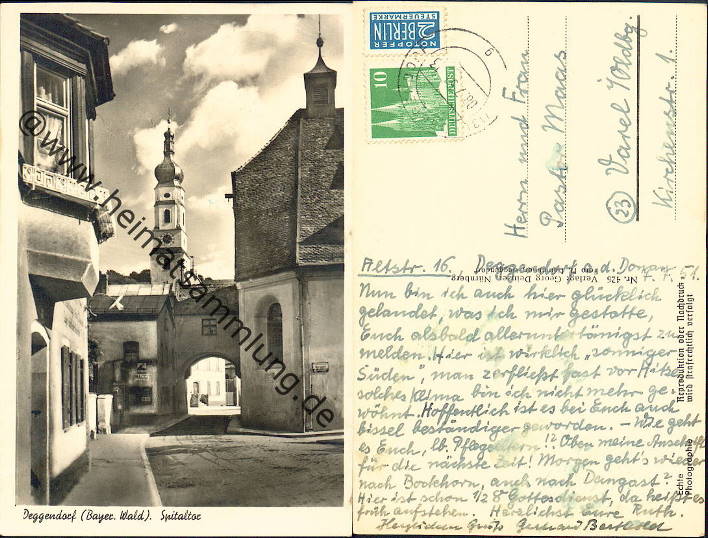 Deggendorf (Bayer. Wald). Spitaltor
@www.heimatsammlung.de
NOTOPFER
2 BERLIN
STEUERMARKE
10
DEUTSCHE POST
Herrn und Frau
Pastor Maas
(23) Varel i. Oldbg.
Kirchenstr. 1.
Altstr. 16. Deggendorf a. d. Donau
7. 7. 51.
Nun bin ich auch hier glücklich
gelandet, was ich mir gestatte,
Euch alsbald alleruntertänigst zu
melden. Hier ist wirklich "sonniger
Süden", man zerfließt fast vor Hitze,
solches Klima bin ich nicht mehr ge-
wöhnt. Hoffentlich ist es bei Euch auch
bissel beständiger geworden. – Wie geht
es Euch, lb. Pflegeeltern!? Oben meine Anschrift
für die nächste Zeit! Morgen geht's wieder
nach Bockhorn, auch nach Dangast?
Hier ist schon 1/2 8 Gottesdienst, da heißt es
früh aufstehen. Herzlichst Eure Ruth.
Herzlichen Gruß Gerhard Berthold
Nr. 425 Verlag: Georg Nürnberg
Echte Photographie
Reproduktion oder Nachdruck
wird strafrechtlich verfolgt